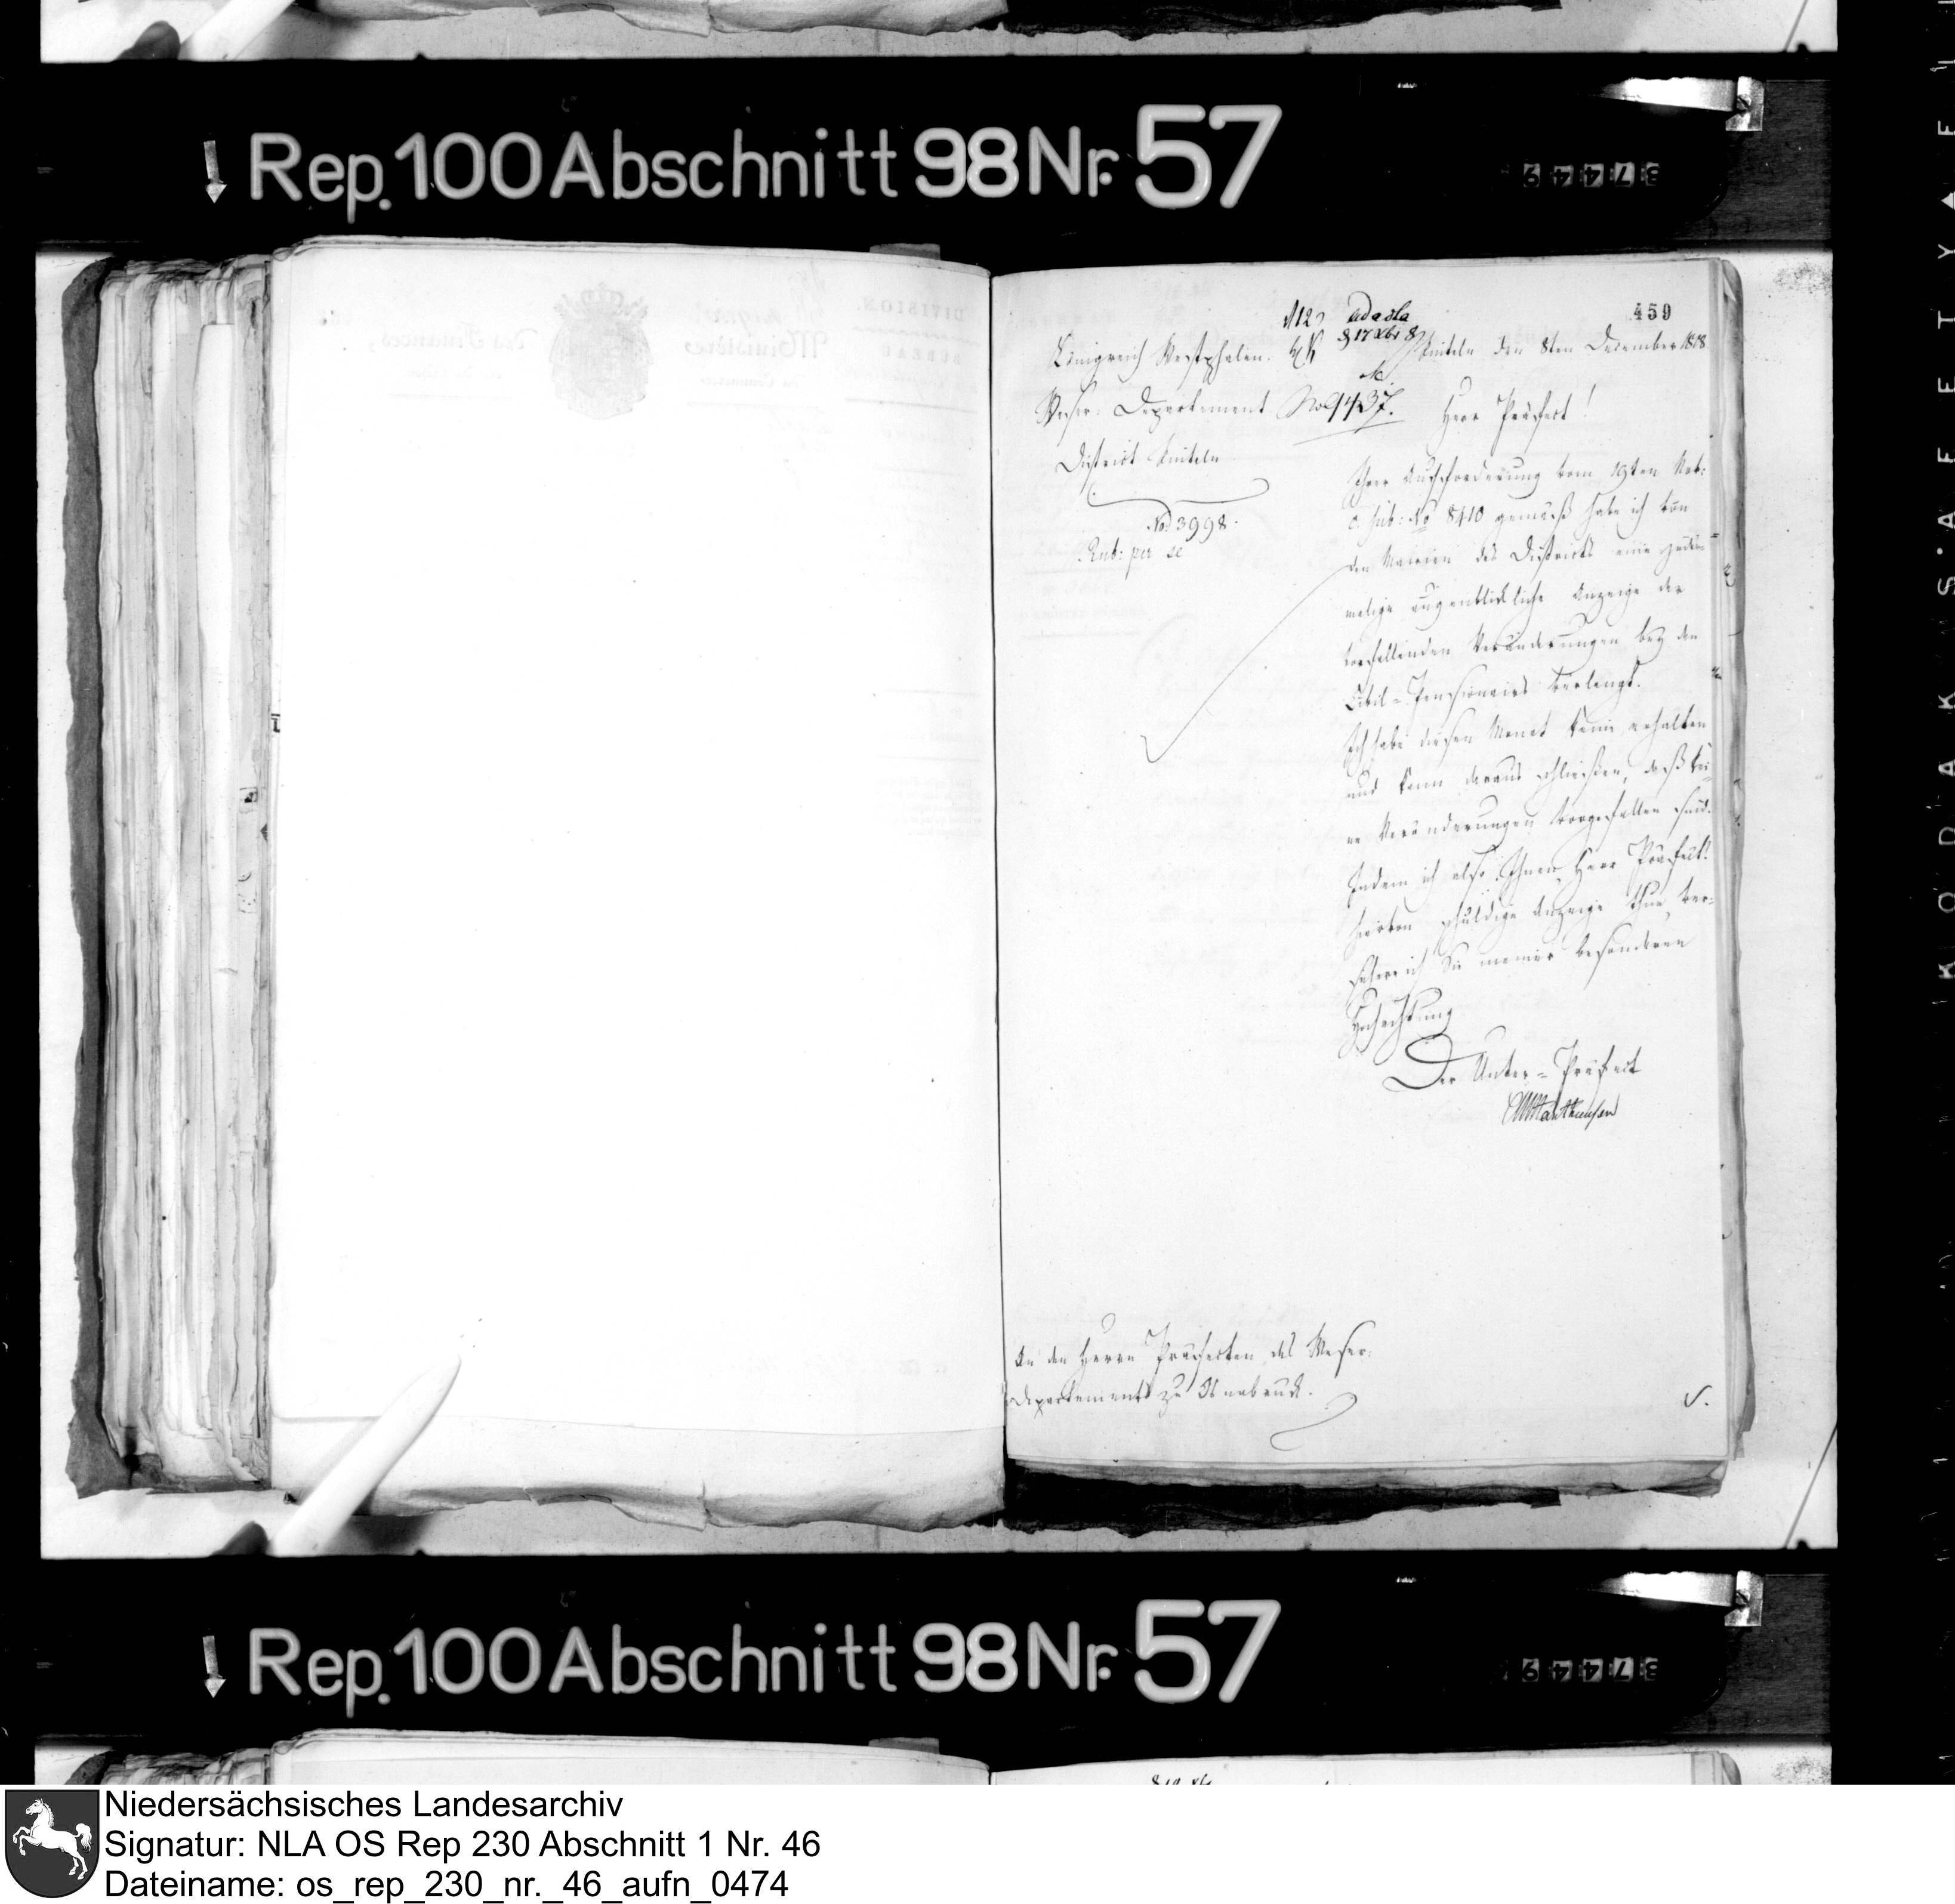 Rep. 100 Abschnitt 98 Nr. 57
459
ad acta
Königreich Westphalen.
Rinteln den 8ten December 1808
Weser-Departement
Herr Präfect!
District Rinteln
No 3998.
Rub: per se
Ihrer Aufforderung vom 19ten Nov:
c. sub: No 8410 gemäß habe ich von
den Mairien des Districts eine jedes-
malige augenblickliche Anzeige der
vorfallenden Veränderungen bey den
Civil-Pensionairs verlangt.
Ich habe diesen Monat keine erhalten
und kann daraus schließen, daß kei-
ne Veränderungen vorgefallen sind.
Indem ich also Ihnen, Herr Präfect!
hievon schuldige Anzeige thue, ver-
sichere ich Sie meiner besonderen
Hochachtung
Der Unter-Präfect
An den Herrn Präfecten des Weser-
departements zu Osnabrück.
Rep. 100 Abschnitt 98 Nr. 57
Niedersächsisches Landesarchiv
Signatur: NLA OS Rep 230 Abschnitt 1 Nr. 46
Dateiname: os_rep_230_nr._46_aufn_0474